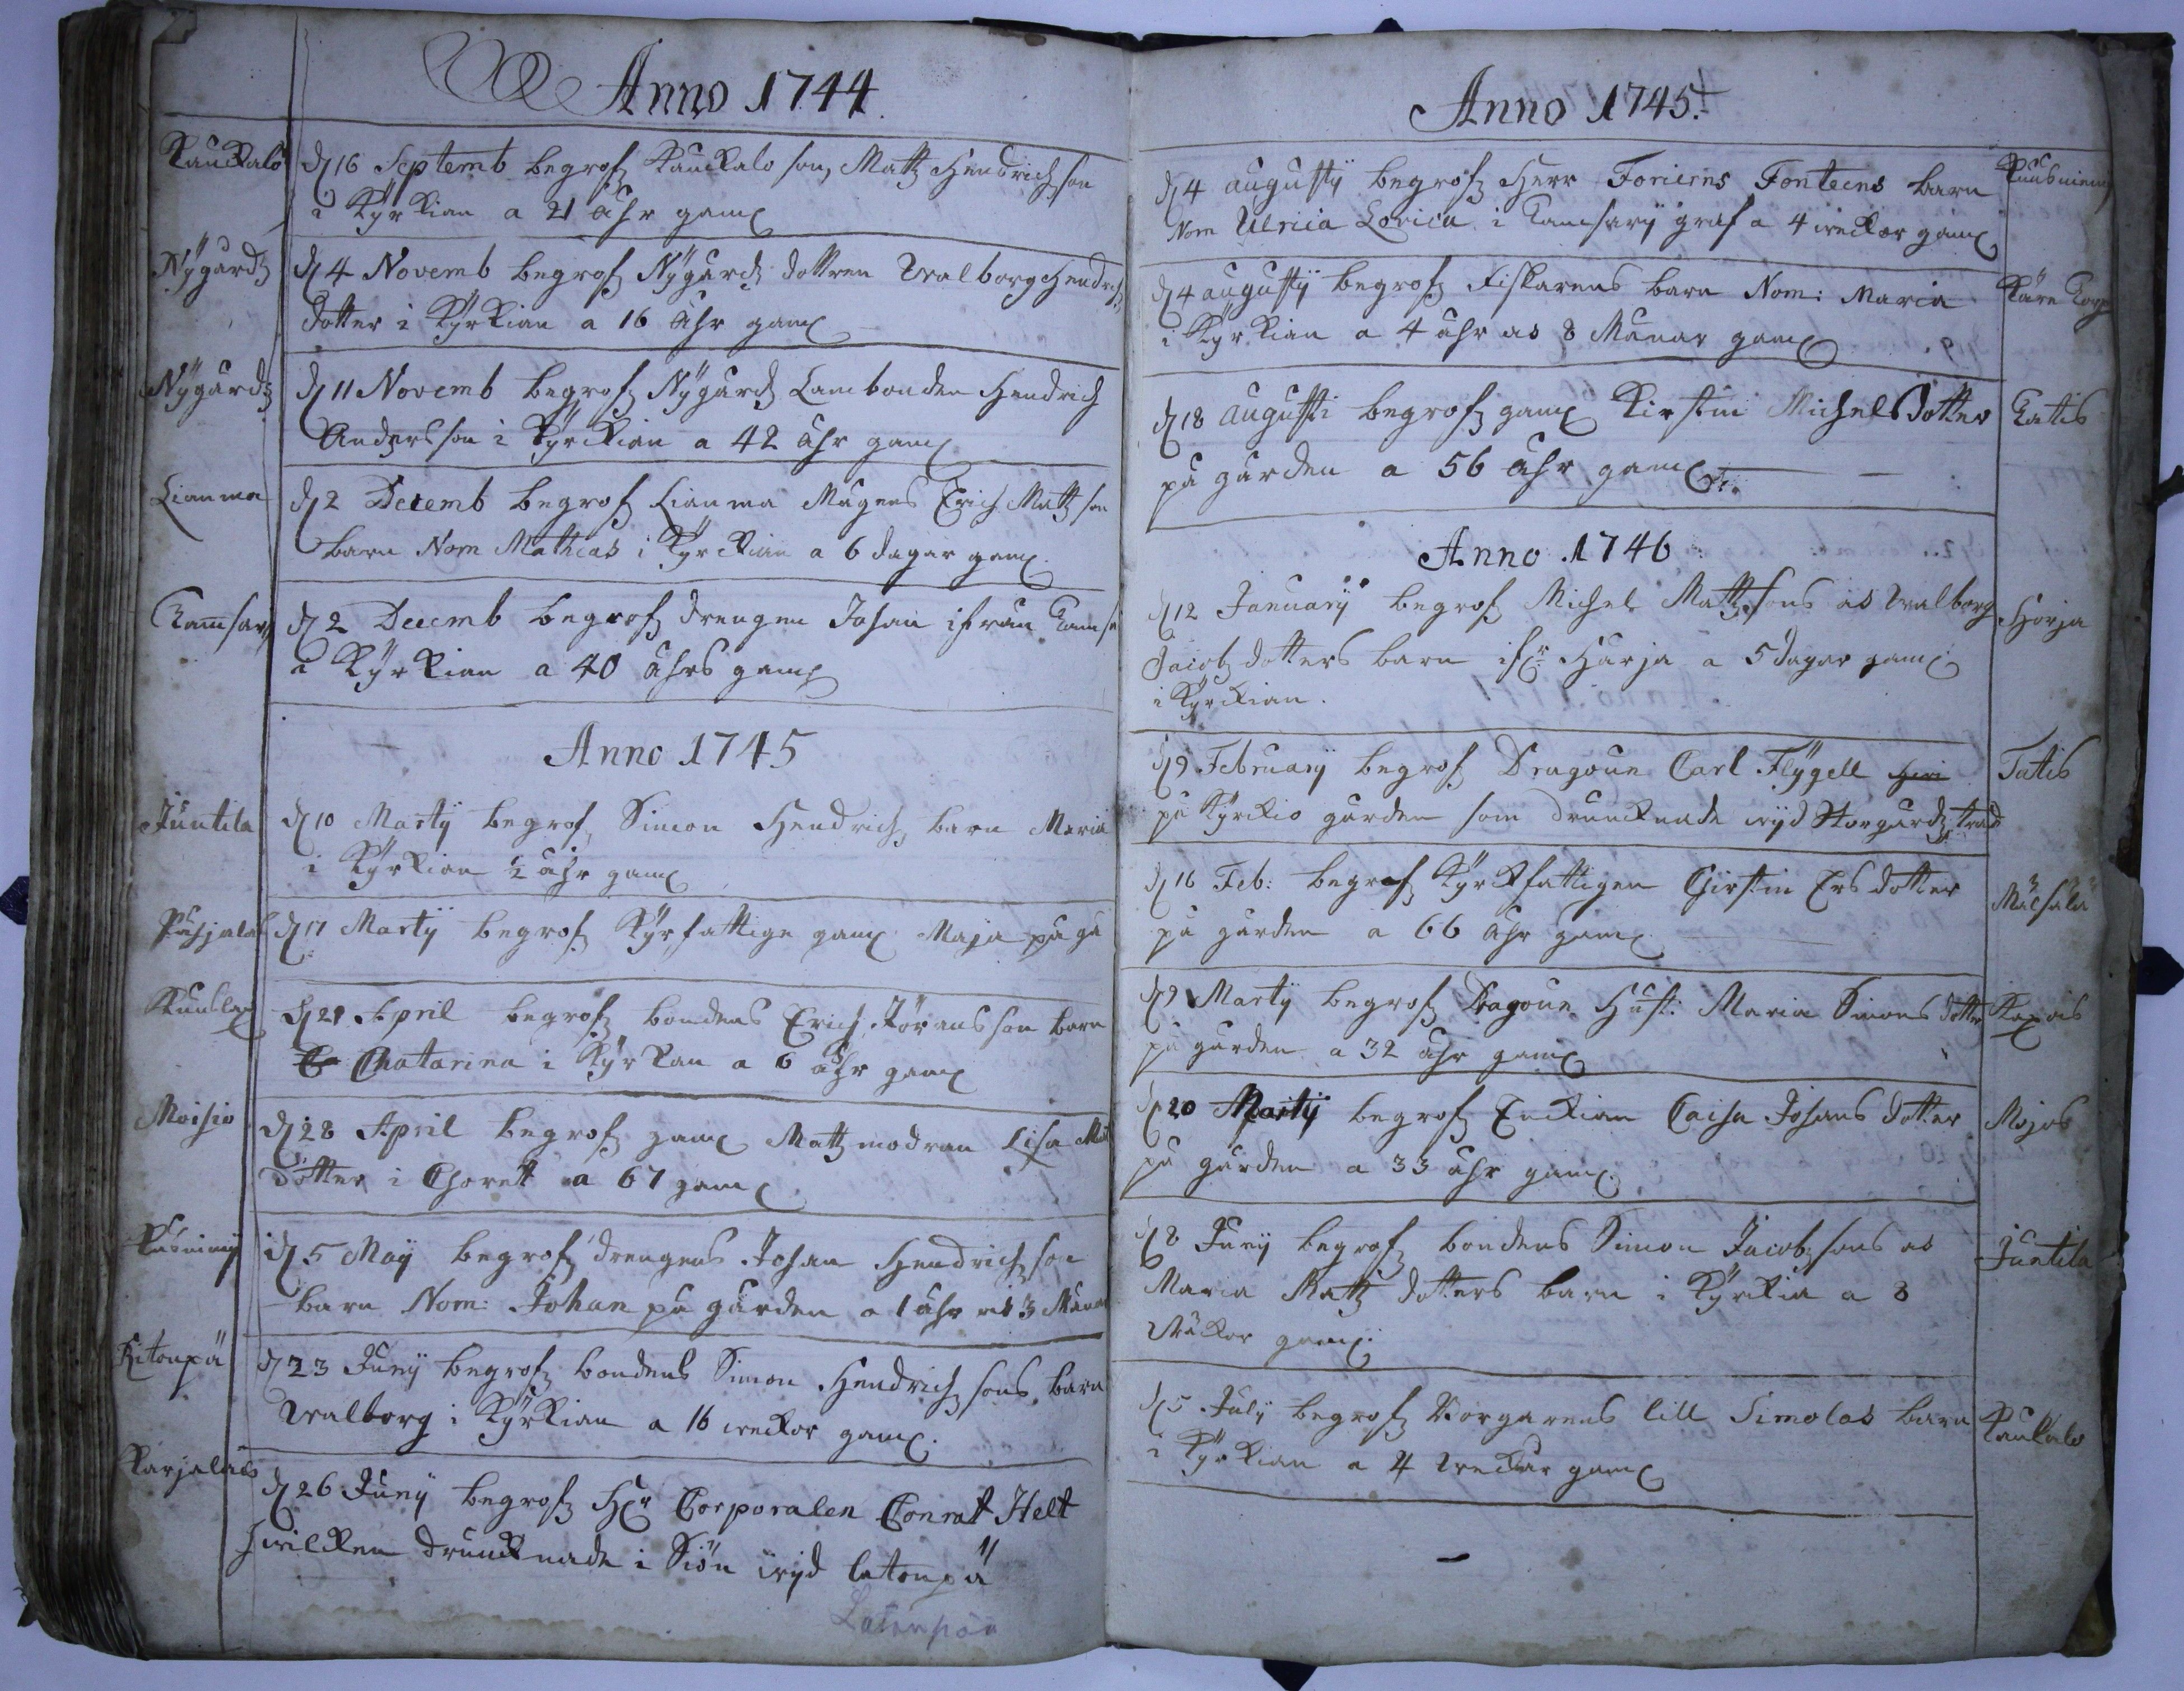 Anno 1744.
Kauckalo
d 16 Septemb begrofz Kauckalo son, Mattz Hendrichson
i Kÿrkian a 21 åhr gaml
Nÿgårdz
d 4 Novemb begrofz Nÿgårdz dottren Walborg Hendrichz
dotter i Kÿrkian a 16 åhr gaml
Nÿgårdz
d 11 Novemb begrofz Nÿgårdz Lambonden Hendrich
Andersson i Kÿrkian a 42 åhr gaml
Lianma
d 2 Decemb begrofz Lianma Mågens Erich Mattzson
barn Nom Mathias i Kÿrckian a 6 dagar gaml
Tamsarÿ
d 2 Decemb begrofz drengen Johan ifrån Tamsa
i Kÿrkian a 40 åhrs gaml
Anno 1745
Juntila
d 10 Martÿ begrofz Simon Hendrichz barn Maria
i Kÿrkian ½ åhr gaml
d 17 Martÿ begrofz Kÿrfattige gaml Maja på gå
d 21 April begrofz bondens Erich Jöransson barn
Chatarina i Kÿrkan a 6 åhr gaml
Moisio
d 28 April begrofz gaml Mattz modran Lisa Mat
dotter i Choret a 67 gaml
d 5 Maÿ begrofz drengens Johan Hendrichson
barn Nom: Johan på gården a 1 åhr as 3 Månar
d 23 Junÿ begrofz bondens Simon Hendrichsons barn
Walborg i Kÿrkian a 16 weckor gaml.
Karjalais
d 26 Junÿ begrofz Hr Corporalen Conrat Helt
hwilcken druncknade i Siön wÿd latonpä
Latonpää
Anno 1745.
d 4 augustÿ begrofz Herr Foriens Fonteens barn
Nom Ulrica Lovica i Tamsarÿ graf a 4 weckor gaml
d 4 augustÿ begrofz Fiskarens barn Nom: Maria
Käre Torp
i Kÿrkian a 4 åhr as 8 Månar gaml
d 18 augusti begrofz gaml Kirstin Michelsdotter
Tatis
på gården a 56 åhr gaml
Anno 1746
d 12 Januarÿ begrofz Michel Mattzsons as Walborg
Harja
Jacobz dotters barn ifr Harja a 5 dagar gaml
i Kÿrckian.
d 9 Februarÿ begrofz Dragoun Carl Flÿgell
Tatis
på Kÿrckio gården som druncknade wÿd Storgårdz
d 16 Feb: begrofz Kÿrkfattigen Chirstin Ersdotter
på gården a 66 åhr gaml
d 9 Martÿ begrofz Dragoun Hust: Maria Simons dotter
på gården a 32 åhr gaml
d 20 Martÿ begrofz Enckian Caisa Johans dotter
Mojos
på gården a 33 åhr gaml
d 8 Junÿ begrofz bondens Simon Jacobzsons as
Juntila
Maria Mattz dotters barn i Kÿrckia a 8
Wäckor gaml.
d 5 Julÿ begrofz Borgarens lill Simolas barn
Kaukalo
i Kÿrkian a 4 weckor gaml